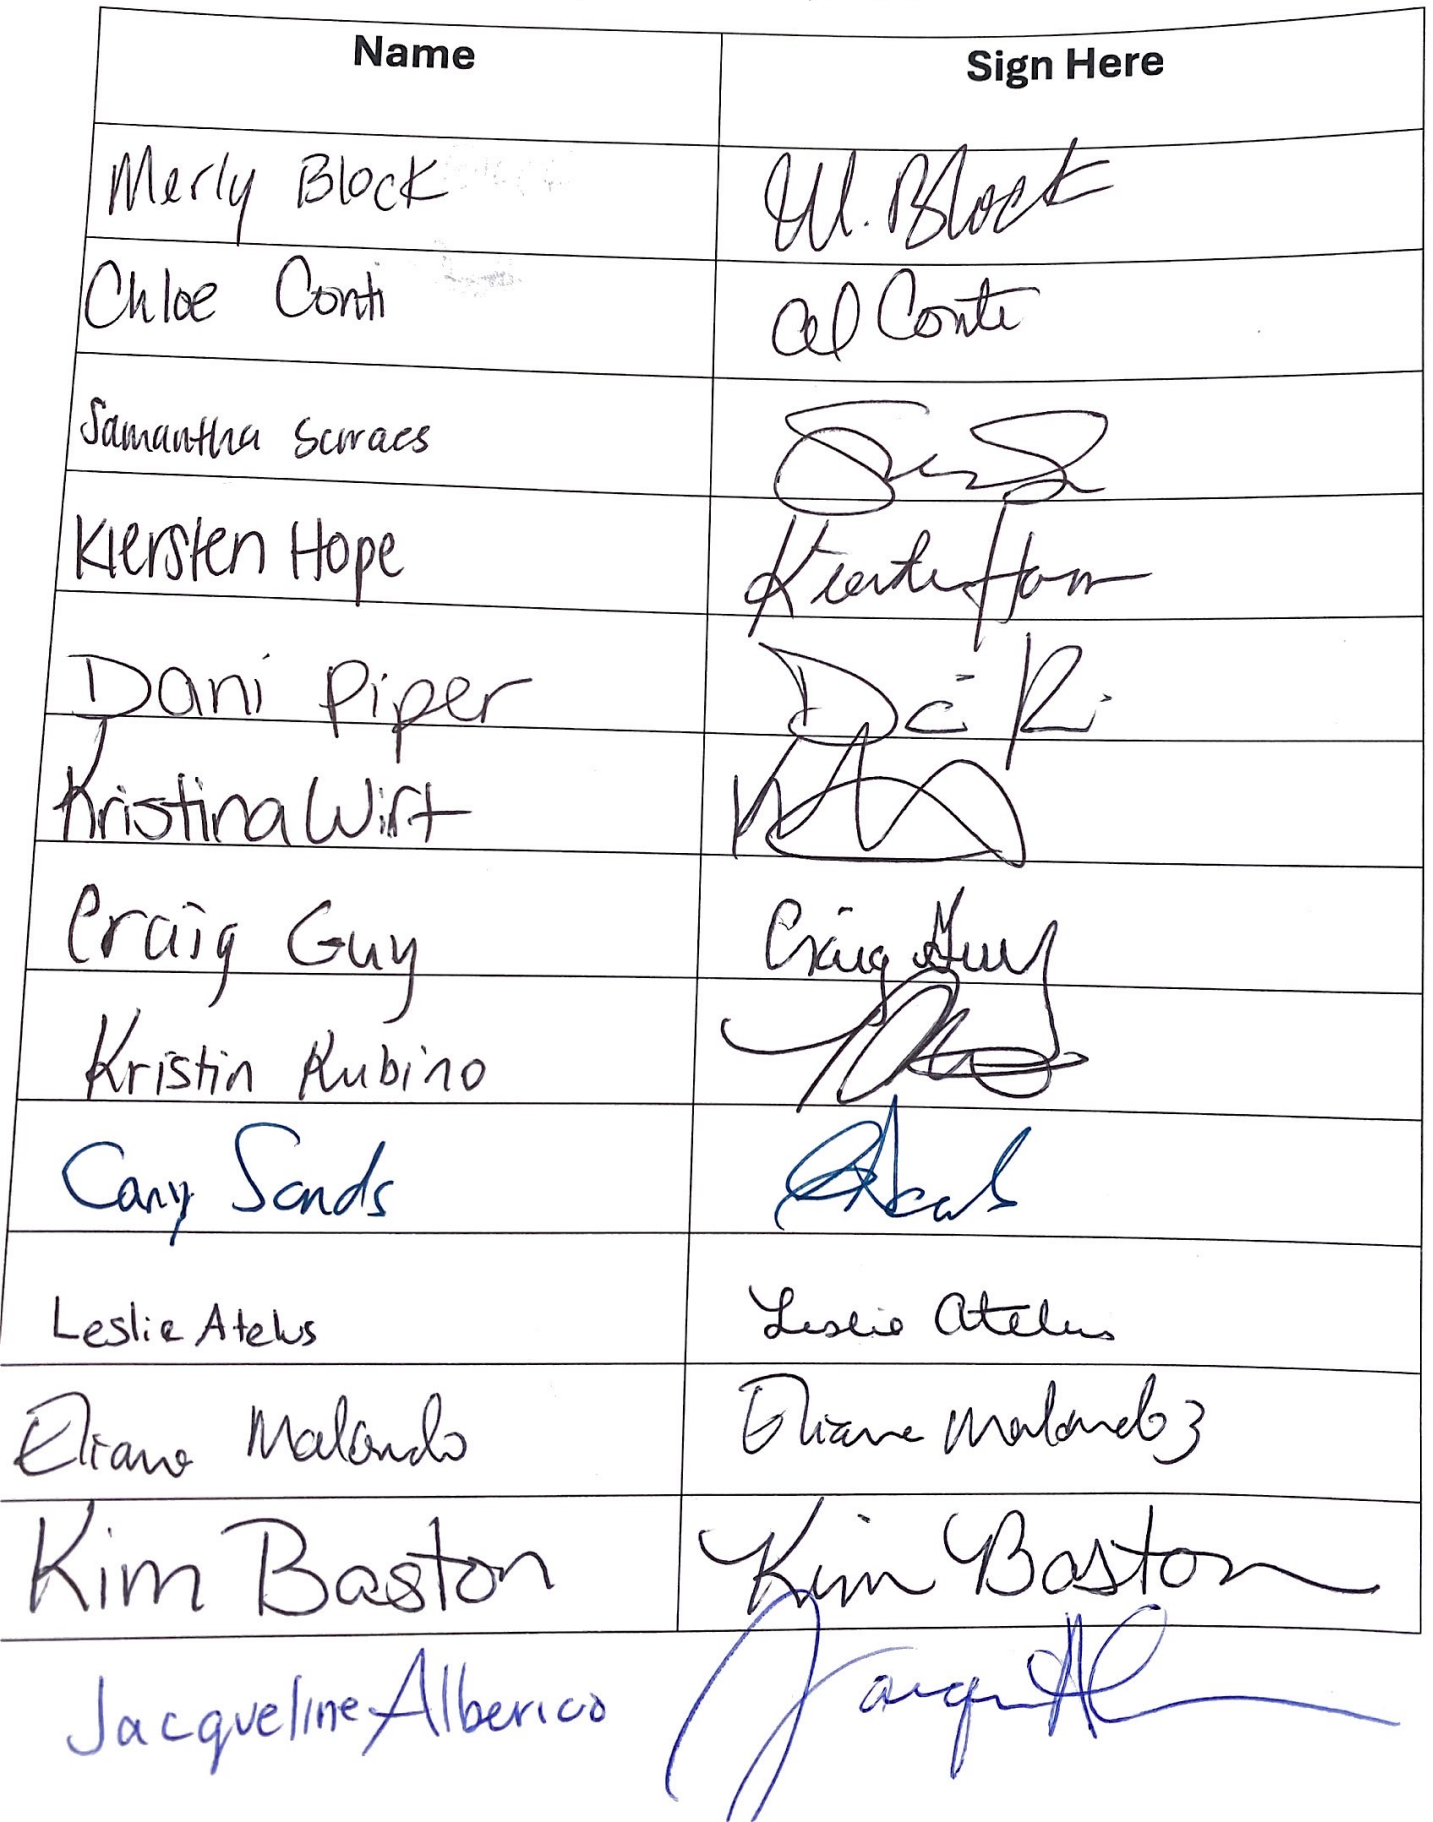 Name Sign Here
Merly Block M. Block
Chloe Conti Conti
Samantha
Kiersten Hope Kiersten
Dani Piper
Kristina Wirt
Craig Guy Craig Guy
Kristin Rubino
Cary Sands
Leslie Atelus Leslie Atelus
Eliane Malando Eliane
Kim Baston Kim Baston
Jacqueline Alberico